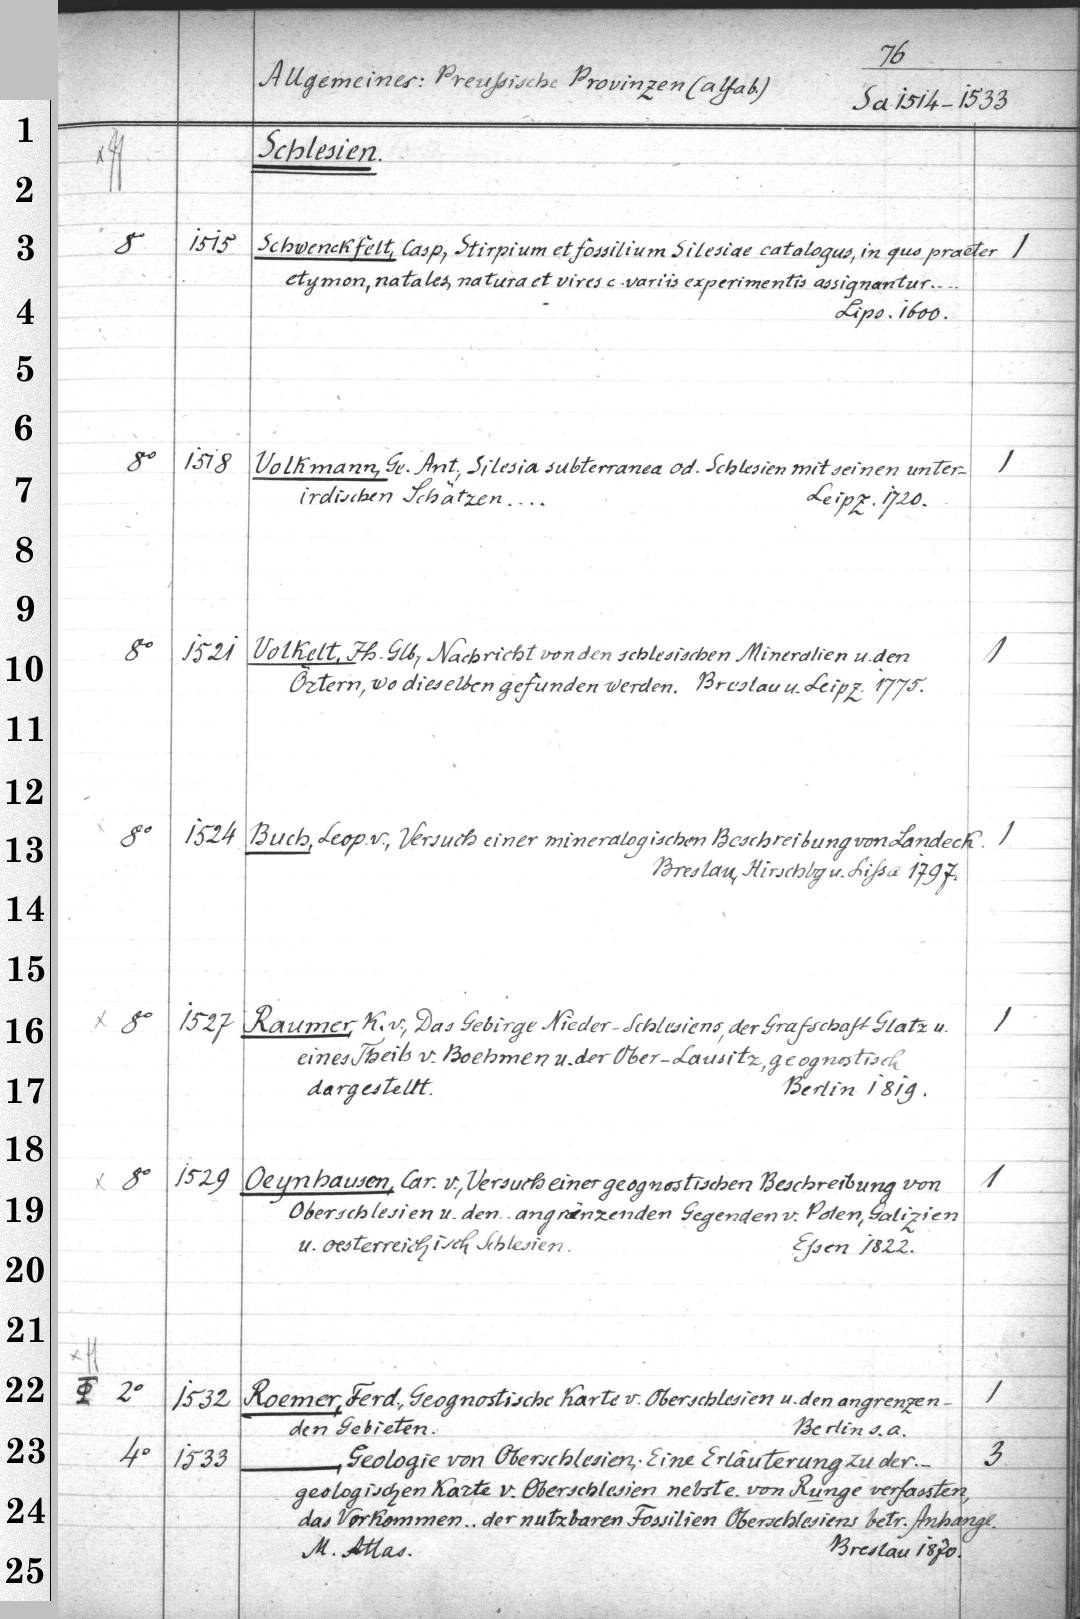 76
Allgemeines: Preußische Provinzen (alfab.)
Sa 1514-1533
1
Schlesien.
2
3
8° 1515 Schwenckfelt, Casp., Stirpium et fossilium Silesiae catalogus, in quo praeter 1
etymon, natales, natura et vires c. variis experimentis assignantur....
4
Lips. 1600.
5
6
8° 1518 Volkmann, Ge. Ant., Silesia subterranea od. Schlesien mit seinen unter- 1
7
irdischen Schätzen.... Leipz. 1720.
8
9
8° 1521 Volkelt, Jh. Glb., Nachricht von den schlesischen Mineralien u. den 1
10
Örtern, wo dieselben gefunden werden. Breslau u. Leipz. 1775.
11
12
8° 1524 Buch, Leop. v., Versuch einer mineralogischen Beschreibung von Landeck. 1
13
Breslau, Hirschbg u. Lissa 1797.
14
15
16
× 8° 1527 Raumer, K. v., Das Gebirge Nieder-Schlesiens, der Grafschaft Glatz u. 1
eines Theils v. Boehmen u. der Ober-Lausitz, geognostisch
17
dargestellt. Berlin 1819.
18
× 8° 1529 Oeynhausen, Car. v., Versuch einer geognostischen Beschreibung von 1
19
Oberschlesien u. den.. angränzenden Gegenden v. Polen, Galizien
u. oesterreichisch Schlesien. Essen 1822.
20
21
22
Φ 2° 1532 Roemer, Ferd., Geognostische Karte v. Oberschlesien u. den angrenzen- 1
den Gebieten. Berlin s. a.
23
4° 1533 ———, Geologie von Oberschlesien. Eine Erläuterung zu der.. 3
geologischen Karte v. Oberschlesien nebst e. von Runge verfassten,
24
das Vorkommen.. der nutzbaren Fossilien Oberschlesiens betr. Anhange.
M. Atlas. Breslau 1870.
25